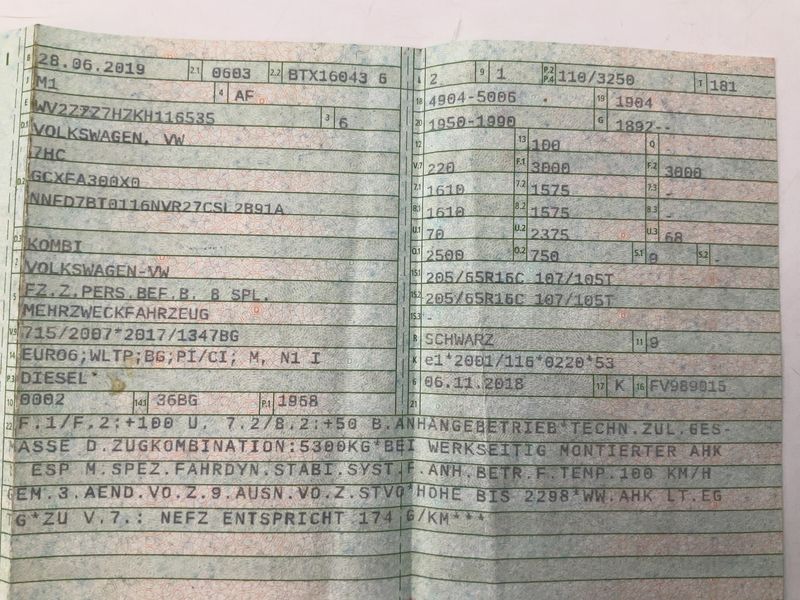 B 28.06.2019 2.1 0603 2.2 BTX16043 6
J M1 4 AF
E WV2ZZZ7HZKH116535 3 6
D.1 VOLKSWAGEN, VW
7HC
D.2 GCXFA300X0
NNFD7BT0116NVR27CSL2B91A
D.3 KOMBI
2 VOLKSWAGEN-VW
5 FZ.Z.PERS.BEF.B. 8 SPL.
MEHRZWECKFAHRZEUG
V.9 715/2007*2017/1347BG
14 EURO6;WLTP;BG;PI/CI; M, N1 I
P.3 DIESEL
10 0002 14.1 36BG P.1 1968
L 2 9 1 P.2 P.4 110/3250 T 181
18 4904-5006 19 1904
20 1950-1990 G 1892--
12 - 13 100 Q -
V.7 220 F.1 3000 F.2 3000
7.1 1610 7.2 1575 7.3 -
8.1 1610 8.2 1575 8.3 -
U.1 70 U.2 2375 U.3 68
O.1 2500 O.2 750 S.1 9 S.2 -
15.1 205/65R16C 107/105T
15.2 205/65R16C 107/105T
15.3 -
R SCHWARZ 11 9
K e1*2001/116*0220*53
6 06.11.2018 17 K 16 FV989015
21
22 F.1/F.2:+100 U. 7.2/8.2:+50 B.ANHANGEBETRIEB*TECHN.ZUL.GES-
ASSE D.ZUGKOMBINATION:5300KG*BEI WERKSEITIG MONTIERTER AHK
ESP M.SPEZ.FAHRDYN.STABI.SYST.F.ANH.BETR.F.TEMP.100 KM/H
GEM.3.AEND.VO.Z.9.AUSN.VO.Z.STVO*HOHE BIS 2298*WW.AHK LT.EG
TG*ZU V.7.: NEFZ ENTSPRICHT 174 G/KM***